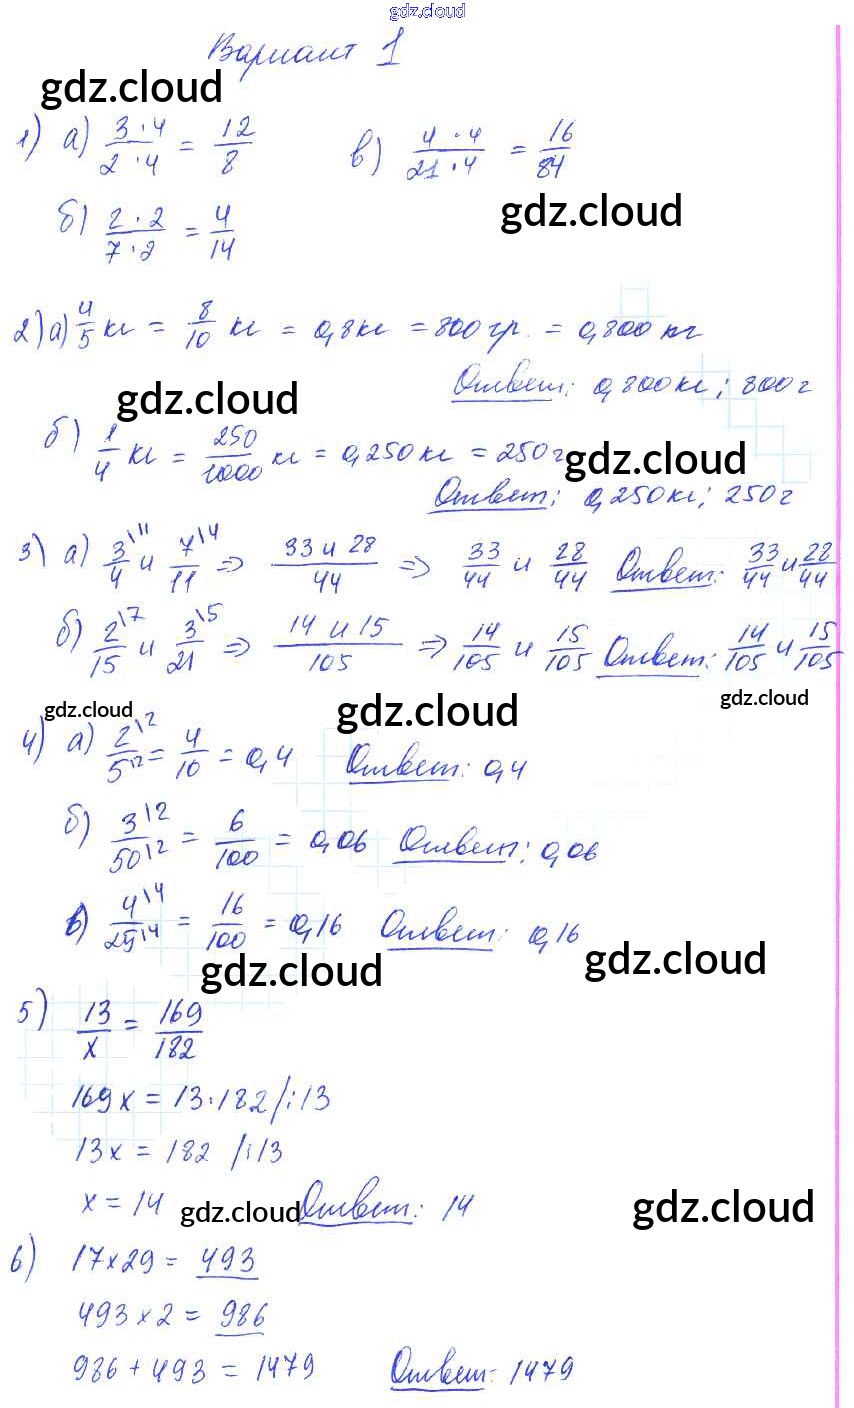 gdz.cloud
Вариант 1
gdz.cloud
1) а) 3·4/2·4 = 12/8 в) 4·4/21·4 = 16/84
gdz.cloud
б) 2·2/7·2 = 4/14
2) а) 4/5 кг = 8/10 кг = 0,8кг = 800гр. = 0,800 кг
Ответ: 0,800кг; 800г
gdz.cloud
б) 1/4 кг = 250/1000 кг = 0,250кг = 250г
gdz.cloud
Ответ: 0,250кг; 250г
3) а) 3\11/4 и 7\4/11 => 33 и 28/44 => 33/44 и 28/44 Ответ: 33/44 и 28/44
б) 2\7/15 и 3\5/21 => 14 и 15/105 => 14/105 и 15/105 Ответ: 14/105 и 15/105
gdz.cloud gdz.cloud gdz.cloud
4) а) 2\2/5\2 = 4/10 = 0,4 Ответ: 0,4
б) 3\2/50\2 = 6/100 = 0,06 Ответ: 0,06
в) 4\4/25\4 = 16/100 = 0,16 Ответ: 0,16
gdz.cloud gdz.cloud
5) 13/x = 169/182
169x = 13·182 /:13
13x = 182 /:13
x = 14 Ответ: 14
gdz.cloud gdz.cloud
6) 17×29 = 493
493×2 = 986
986 + 493 = 1479 Ответ: 1479